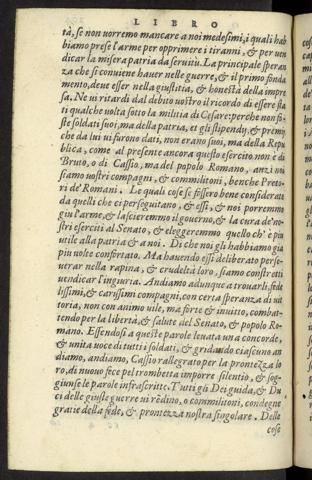 LIBRO
tà, se non vorremo mancare a noi medesimi, i quali hab
biamo prese l'arme per opprimere i tiranni, & per ven
dicar la misera patria da servitù. La principale speran
za che si conviene haver nelle guerre, & il primo fonda
mento, deve esser nella giustitia, & honestà della impre
sa. Ne vi ritardi dal debito vostro il ricordo di essere sta
ti qualche volta sotto la militia di Cesare: perche non fu
ste soldati suoi, ma della patria, et gli stipendy, & premij
che da lui vi furono dati, non erano suoi, ma della Repu
blica, come al presente ancora questo esercito non è di
Bruto, o di Cassio, ma del popolo Romano, anzi noi
siamo vostri compagni, & commilitoni, benche Preto
ri de' Romani. Le quali cose se fissero bene considerate
da quelli che ci perseguitano, & essi, & noi porremmo
giu l'arme, & lascieremmo il governo, & la cura de'no
stri eserciti al Senato, & eleggeremmo quello ch'è piu
utile alla patria & a noi. Di che noi gli habbiamo gia
piu volte confortato. Ma havendo essi deliberato perse
verar nella rapina, & crudeltà loro, siamo constretti
vendicar l'ingiuria. Andiamo adunque a trovarli, fede
lissimi, & carissimi compagni, con certa speranza di vit
toria, non con animo vile, ma forte & invitto, combat
tendo per la libertà, & salute del Senato, & popolo Ro
mano. Essendosi a queste parole levata una concorde,
& unita voce di tutti i soldati, & gridando ciascuno an
diamo, andiamo, Cassio rallegrato per la prontezza lo
ro, di nuovo fece pel trombetta imporre silentio, & sog
giunse le parole infrascritte. Tutti gli Dei guida, & Du
ci delle giuste guerre vi rēdino, o commilitoni, condegne
gratie della fede, & prontezza nostra singolare. Delle
cose